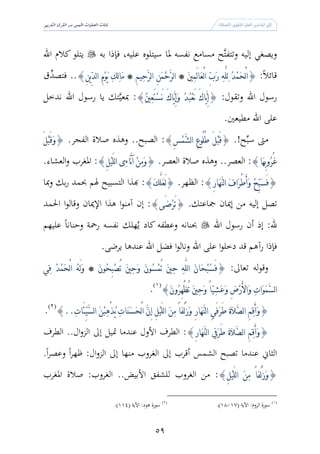 ويصغي إليه وتتفتَّح مسامع نفسه لما سيتلوه عليه، فإذا به ﷺ يتلو كلام الله
قائلاً: ﴿الْحَمْدُ لِلَّهِ رَبِّ الْعَالَمِينَ * الرَّحْمَنِ الرَّحِيمِ * مَالِكِ يَوْمِ الدِّينِ﴾.. فتصدِّق
رسول الله وتقول: ﴿إِيَّاكَ نَعْبُدُ وَإِيَّاكَ نَسْتَعِينُ﴾: بمعيَّتك يا رسول الله ندخل
على الله مطيعين.
متى سبَّح!. ﴿قَبْلَ طُلُوعِ الشَّمْسِ﴾: الصبح.. وهذه صلاة الفجر. ﴿وَقَبْلَ
غُرُوبِهَا﴾: العصر.. وهذه صلاة العصر. ﴿وَمِنْ آنَاءِ اللَّيْلِ﴾: المغرب والعشاء.
﴿فَسَبِّحْ وَأَطْرَافَ النَّهَارِ﴾: الظهر. ﴿لَعَلَّكَ﴾: بهذا التسبيح لهم بحمد ربك وبما
تصل إليه من إيمان جماعتك. ﴿تَرْضَى﴾: إن آمنوا هذا الإيمان وقالوا الحمد
لله: إذ أن رسول الله ﷺ بحنانه وعطفه كاد يُهلك نفسه رحمة وحناناً عليهم
فإذا رآهم قد دخلوا على الله ونالوا فضل الله عندها يرضى.
وقوله تعالى: ﴿فَسُبْحَانَ اللَّهِ حِينَ تُمْسُونَ وَحِينَ تُصْبِحُونَ * وَلَهُ الْحَمْدُ فِي
السَّمَاوَاتِ وَالْأَرْضِ وَعَشِيّاً وَحِينَ تُظْهِرُونَ﴾(١).
﴿وَأَقِمِ الصَّلَاةَ طَرَفَيِ النَّهَارِ وَزُلَفاً مِنَ اللَّيْلِ إِنَّ الْحَسَنَاتِ يُذْهِبْنَ السَّيِّئَاتِ..﴾(٢).
﴿وَأَقِمِ الصَّلَاةَ طَرَفَيِ النَّهَارِ﴾: الطرف الأول عندما تميل إلى الزوال.. الطرف
الثاني عندما تصبح الشمس أقرب إلى الغروب منها إلى الزوال: ظهراً وعصراً.
﴿وَزُلَفاً مِنَ اللَّيْلِ﴾: من الغروب للشفق الأبيض.. الغروب: صلاة المغرب
(١) سورة الروم: الآية (١٧-١٨). (٢) سورة هود: الآية (١١٤).
٥٩